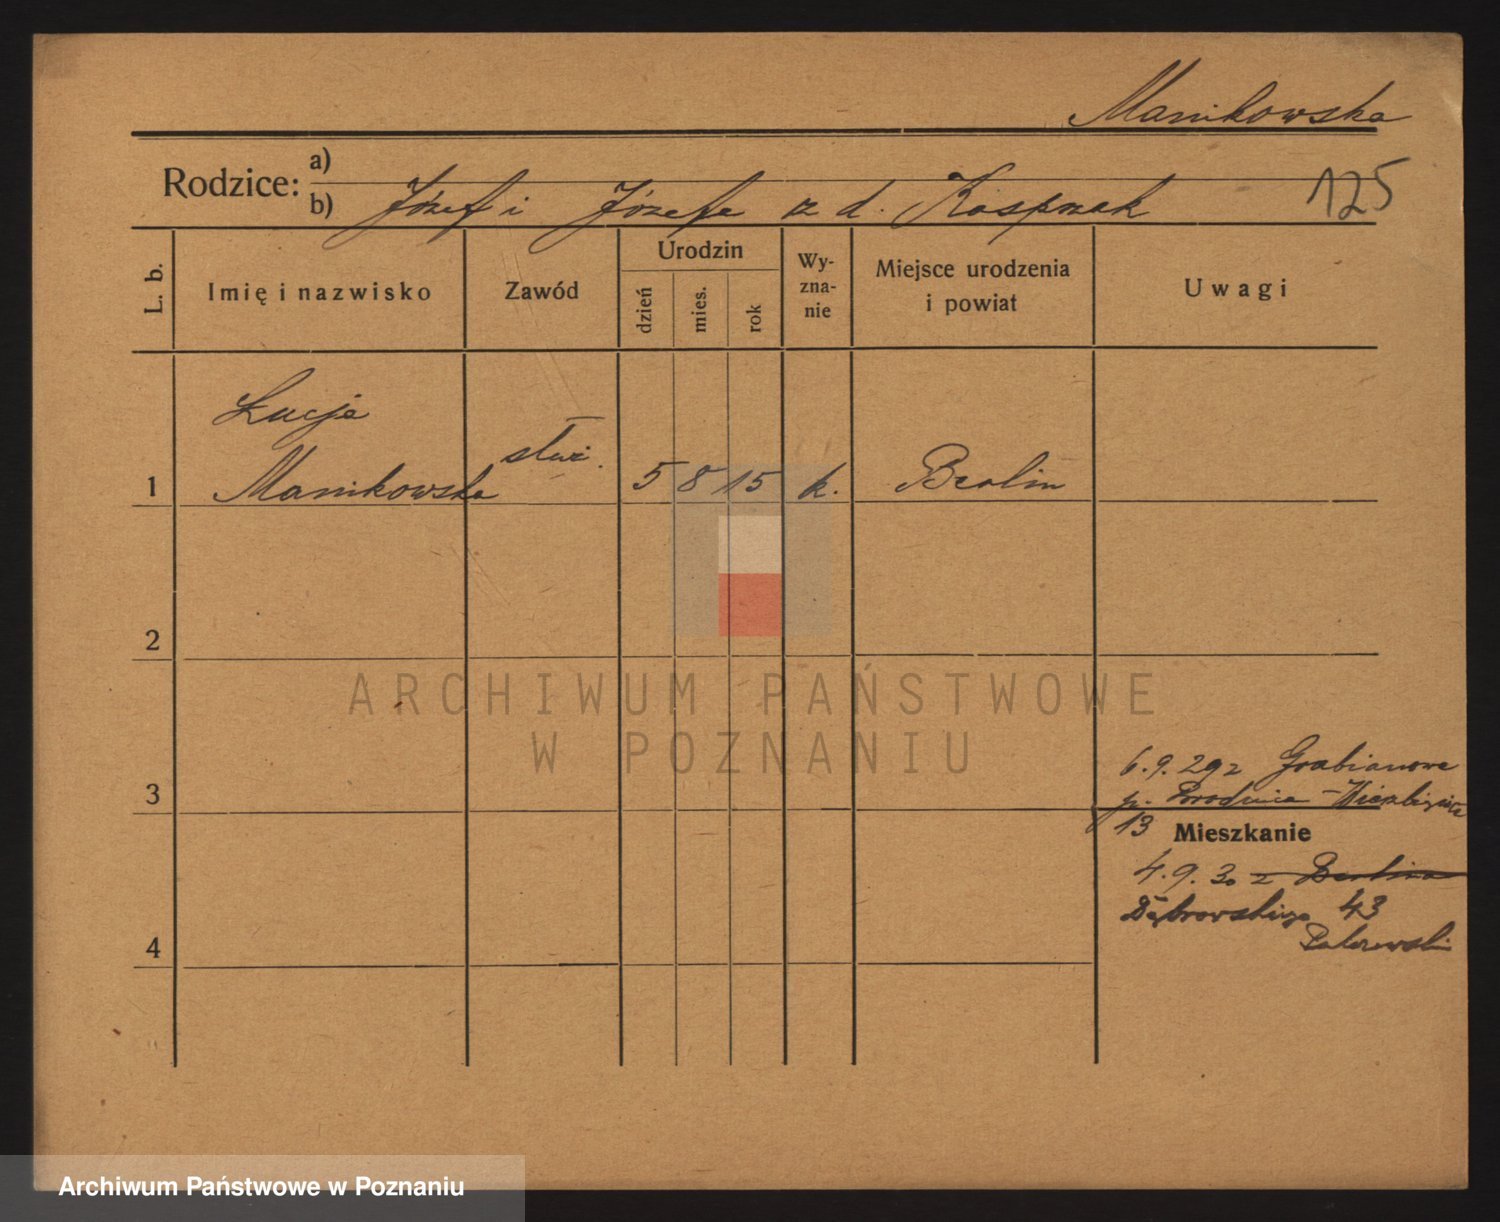 Manikowska
125
Rodzice: a)
b) Józef i Józefa z d. Kasprzak
L. b.
Imię i nazwisko
Zawód
Urodzin
dzień
mies.
rok
Wy-
zna-
nie
Miejsce urodzenia
i powiat
Uwagi
Łucja
1 Manikowska służ. 5 8 15 k. Berlin
2
ARCHIWUM PAŃSTWOWE
W POZNANIU
6.9.29 z Grabianowa
3
p.
13 Mieszkanie
4.9.30 z Berlina
Dąbrowskiego 43
4
Archiwum Państwowe w Poznaniu